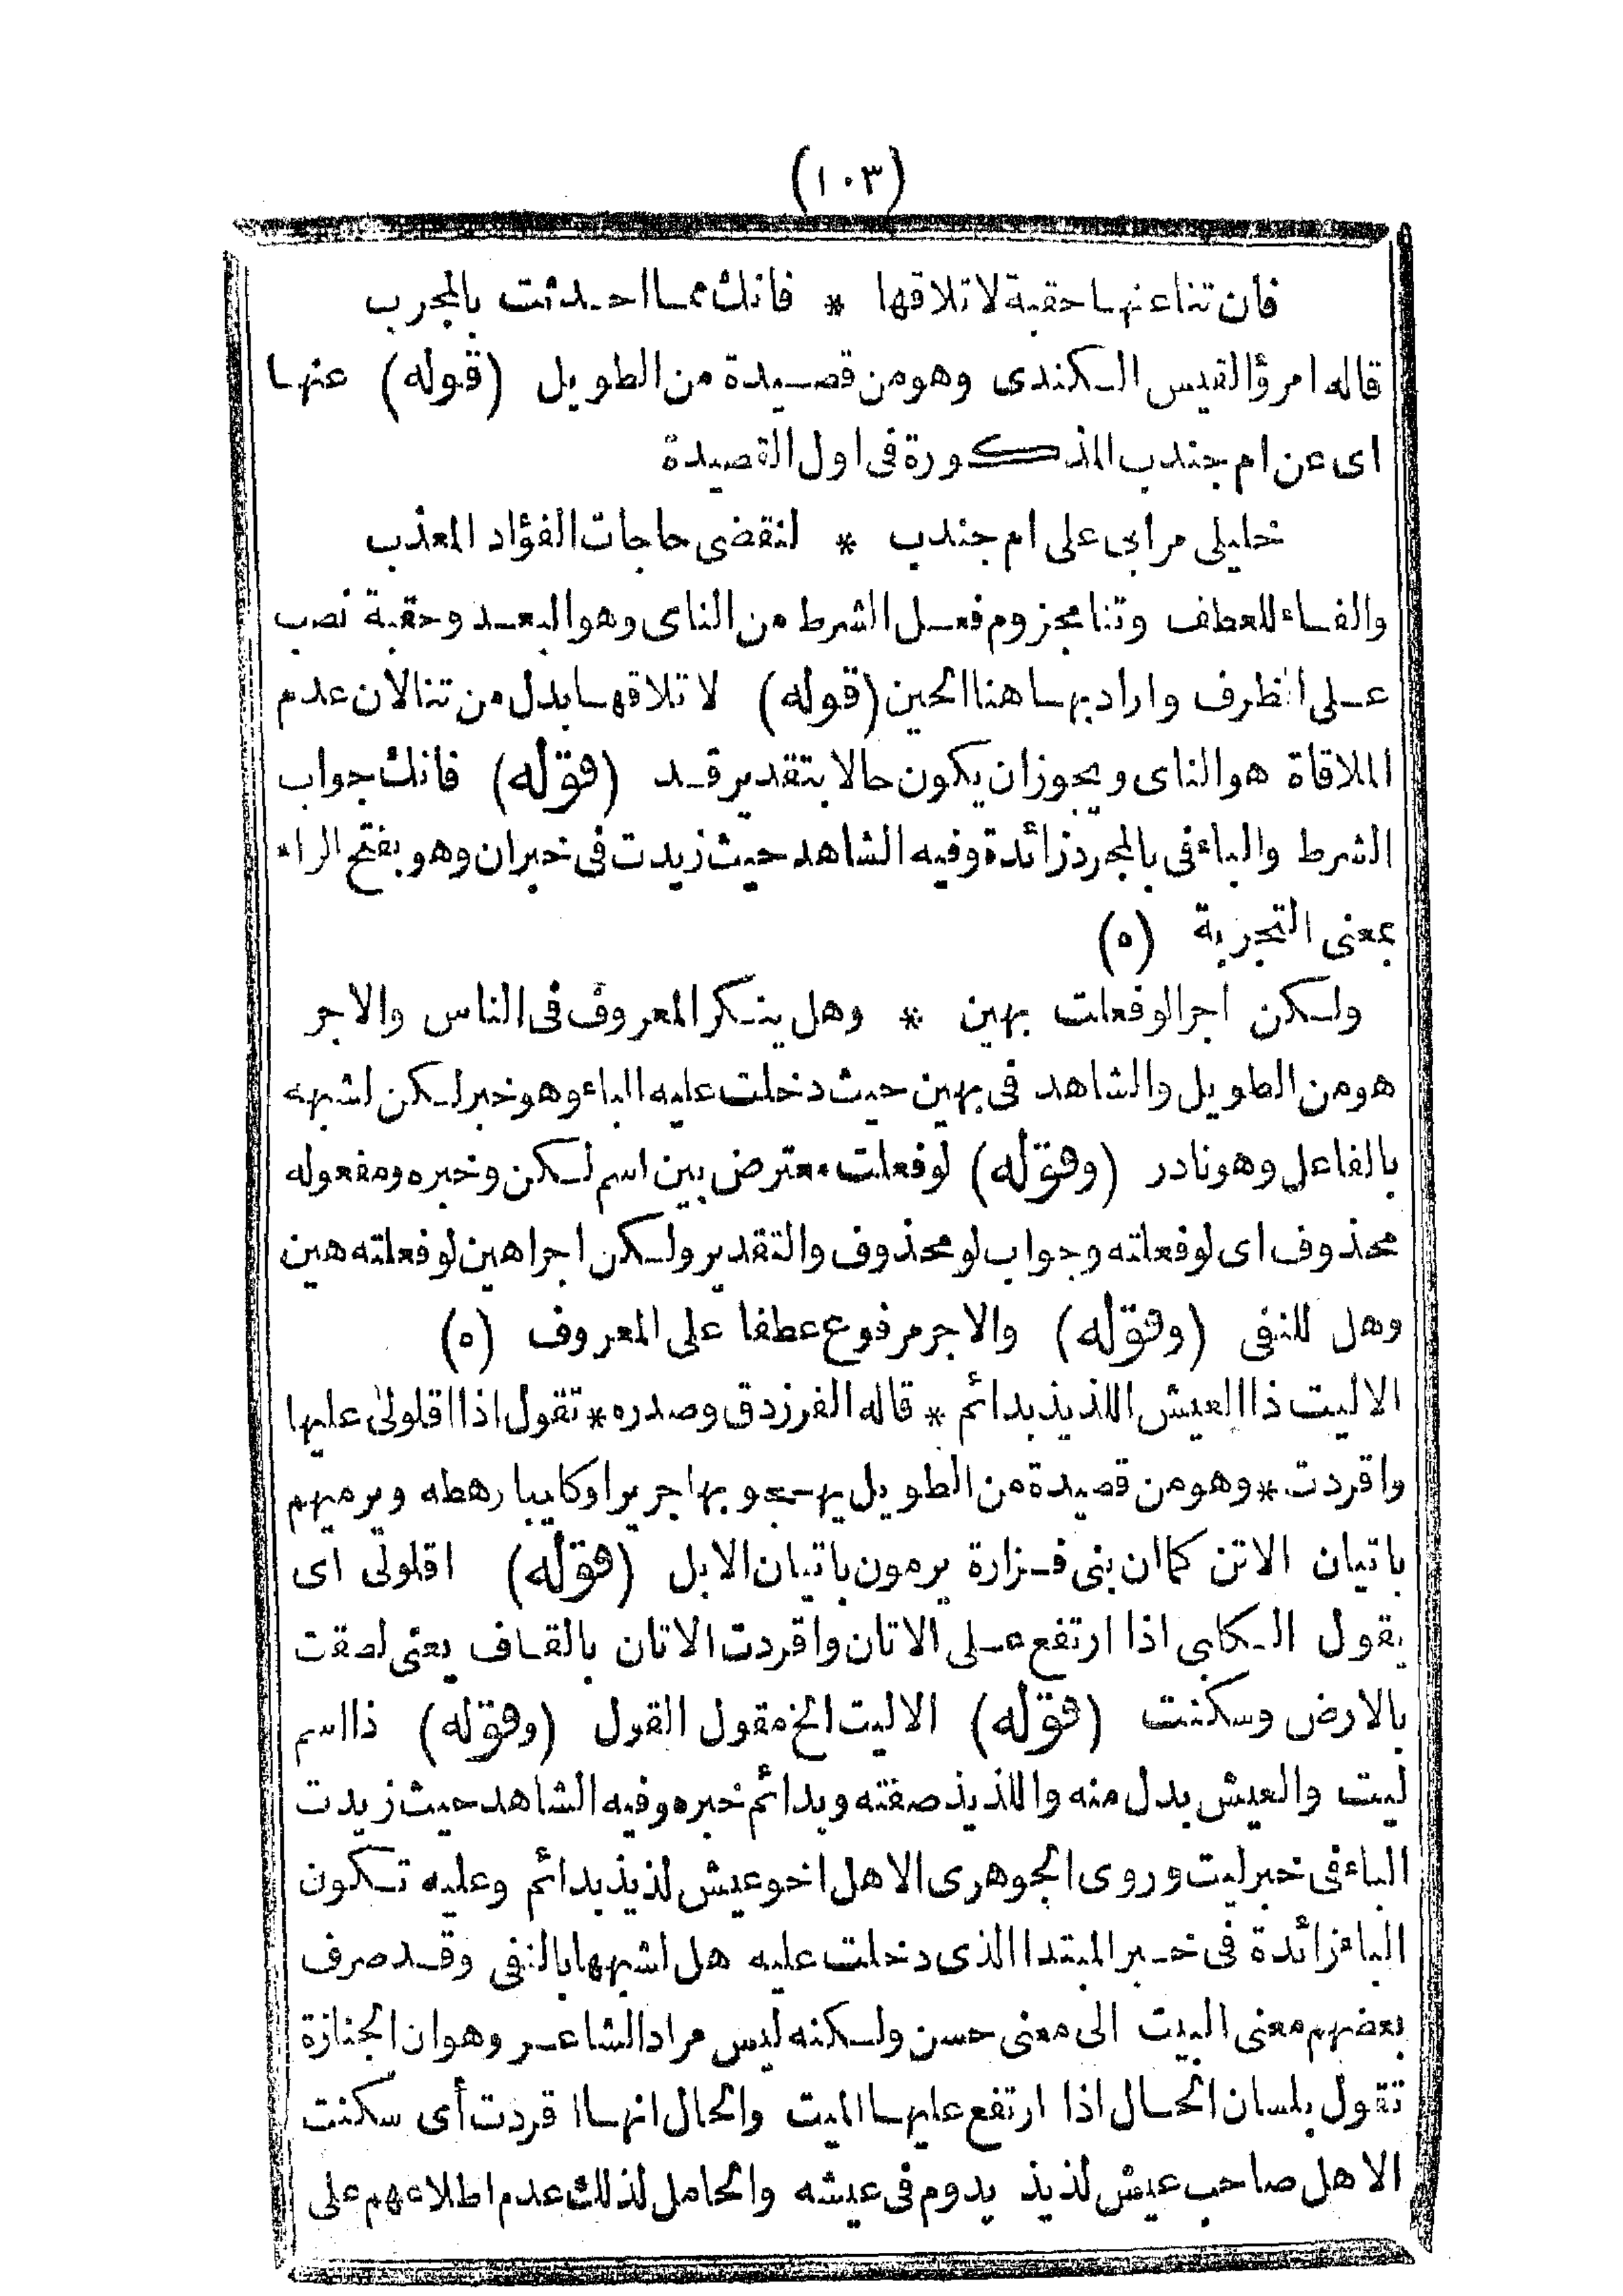 (١٠٣)
فان تنا عنها حقبة لا تلاقها * فانك مما احدثت بالمجرب
قاله امرؤ القيس الكندى وهو من قصيدة من الطويل (قوله) عنها
اى عن ام جندب المذكورة فى اول القصيدة
خليلى مرابى على ام جندب * لنقضى حاجات الفؤاد المعذب
والفاء للعطف وتنا مجزوم فعل الشرط من الناى وهو البعد وحقبة نصب
على الظرف واراد بها هنا الحين (قوله) لا تلاقها بدل من تنا لان عدم
الملاقاة هو الناى ويجوز ان يكون حالا بتقدير قد (قوله) فانك جواب
الشرط والباء فى بالمجرد زائدة وفيه الشاهد حيث زيدت فى خبران وهو بفتح الراء
بمعنى التجربة (٥)
ولكن اجرا لو فعلت بهين * وهل ينكر المعروف فى الناس والاجر
هو من الطويل والشاهد فى بهين حيث دخلت عليه الباء وهو خبر لكن لشبهه
بالفاعل وهو نادر (وقوله) لو فعلت معترض بين اسم لكن وخبره ومفعوله
محذوف اى لو فعلته وجواب لو محذوف والتقدير ولكن اجرا هين لو فعلته هين
وهل للنفى (وقوله) والاجر مرفوع عطفا على المعروف (٥)
الا ليت ذا العيش اللذيذ بدائم * قاله الفرزدق وصدره * تقول اذا اقلولى عليها
واقردت * وهو من قصيدة من الطويل يهجو بها جريرا وكليبا رهطه ويرميهم
باتيان الاتن كما ان بنى فزارة يرمون باتيان الابل (قوله) اقلولى اى
يقول الكلبى اذا ارتفع على الاتان واقردت الاتان بالقاف يعنى لصقت
بالارض وسكنت (قوله) الا ليت الخ مقول القول (وقوله) ذا اسم
ليت والعيش بدل منه واللذيذ صفته وبدائم خبره وفيه الشاهد حيث زيدت
الباء فى خبر ليت وروى الجوهرى الا هل اخو عيش لذيذ بدائم وعليه تكون
الباء زائدة فى خبر المبتدا الذى دخلت عليه هل لشبهها بالنفى وقد صرف
بعضهم معنى البيت الى معنى حسن ولكنه ليس مراد الشاعر وهو ان الجنازة
تقول بلسان الحال اذا ارتفع عليها الميت والحال انها اقردت أى سكنت
الا هل صاحب عيش لذيذ يدوم فى عيشه والحامل لذلك عدم اطلاعهم على